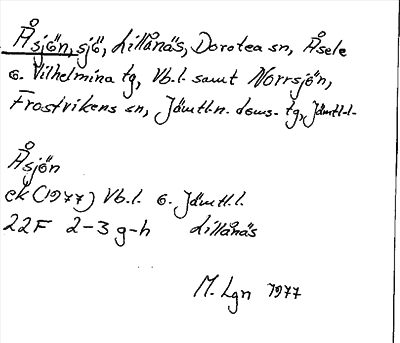 Åsjön, sjö, Lillånäs, Dorotea sn, Åsele
o. Vilhelmina tg, Vb.l. samt Norrsjön,
Frostvikens sn, Jämtl.n. doms. tg, Jämtl.l.
Åsjön
ek (1977) Vb.l. o. Jämtl.l.
22F 2-3 g-h Lillånäs
M. Lgn 1977